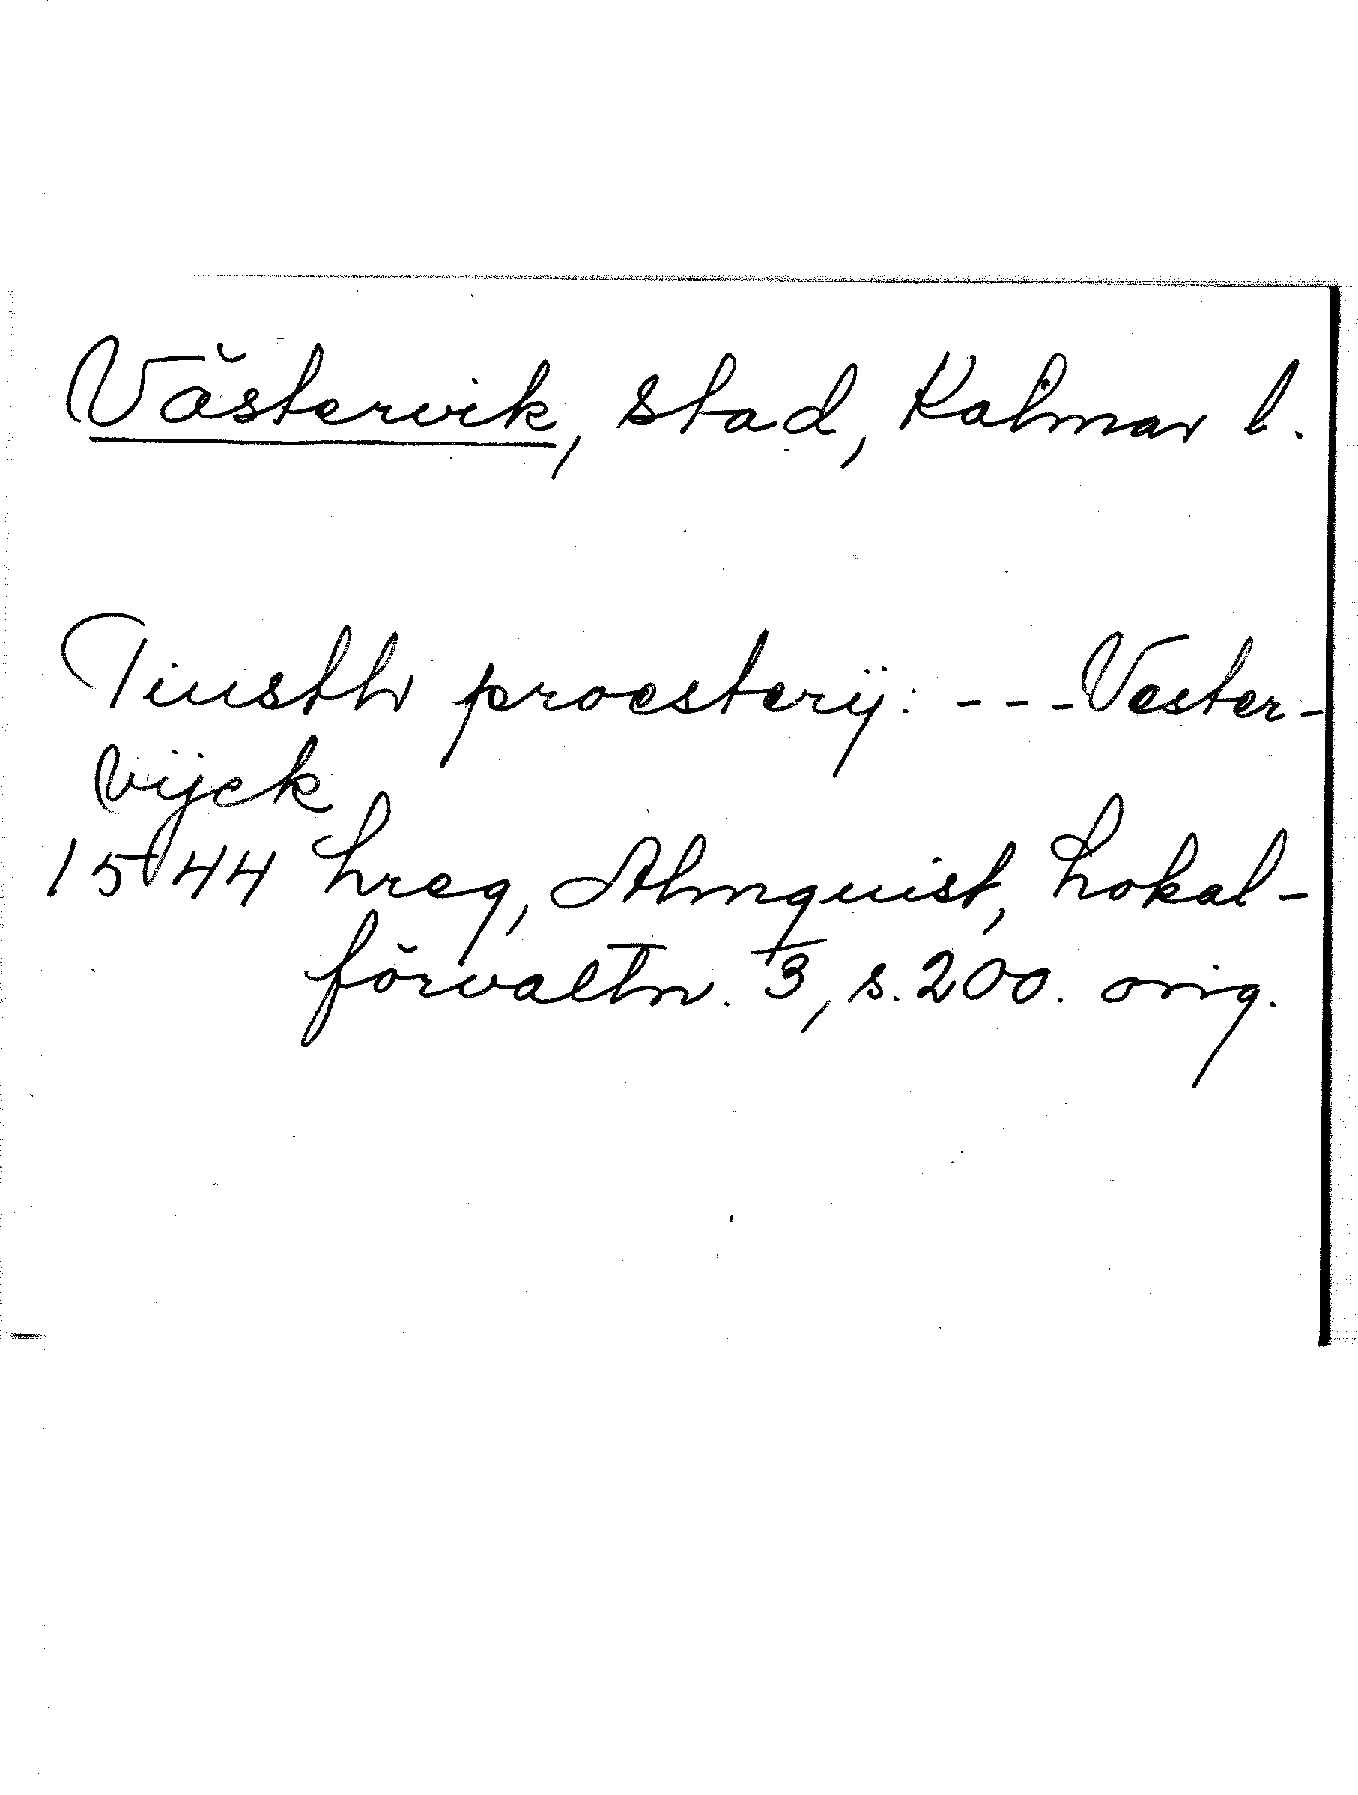 Västervik, stad, Kalmar l.
Tiusth proesterÿ: --- Vester-
vijck
1544 Lreg, Almquist, Lokal-
förvaltn. 3, s. 200. orig.